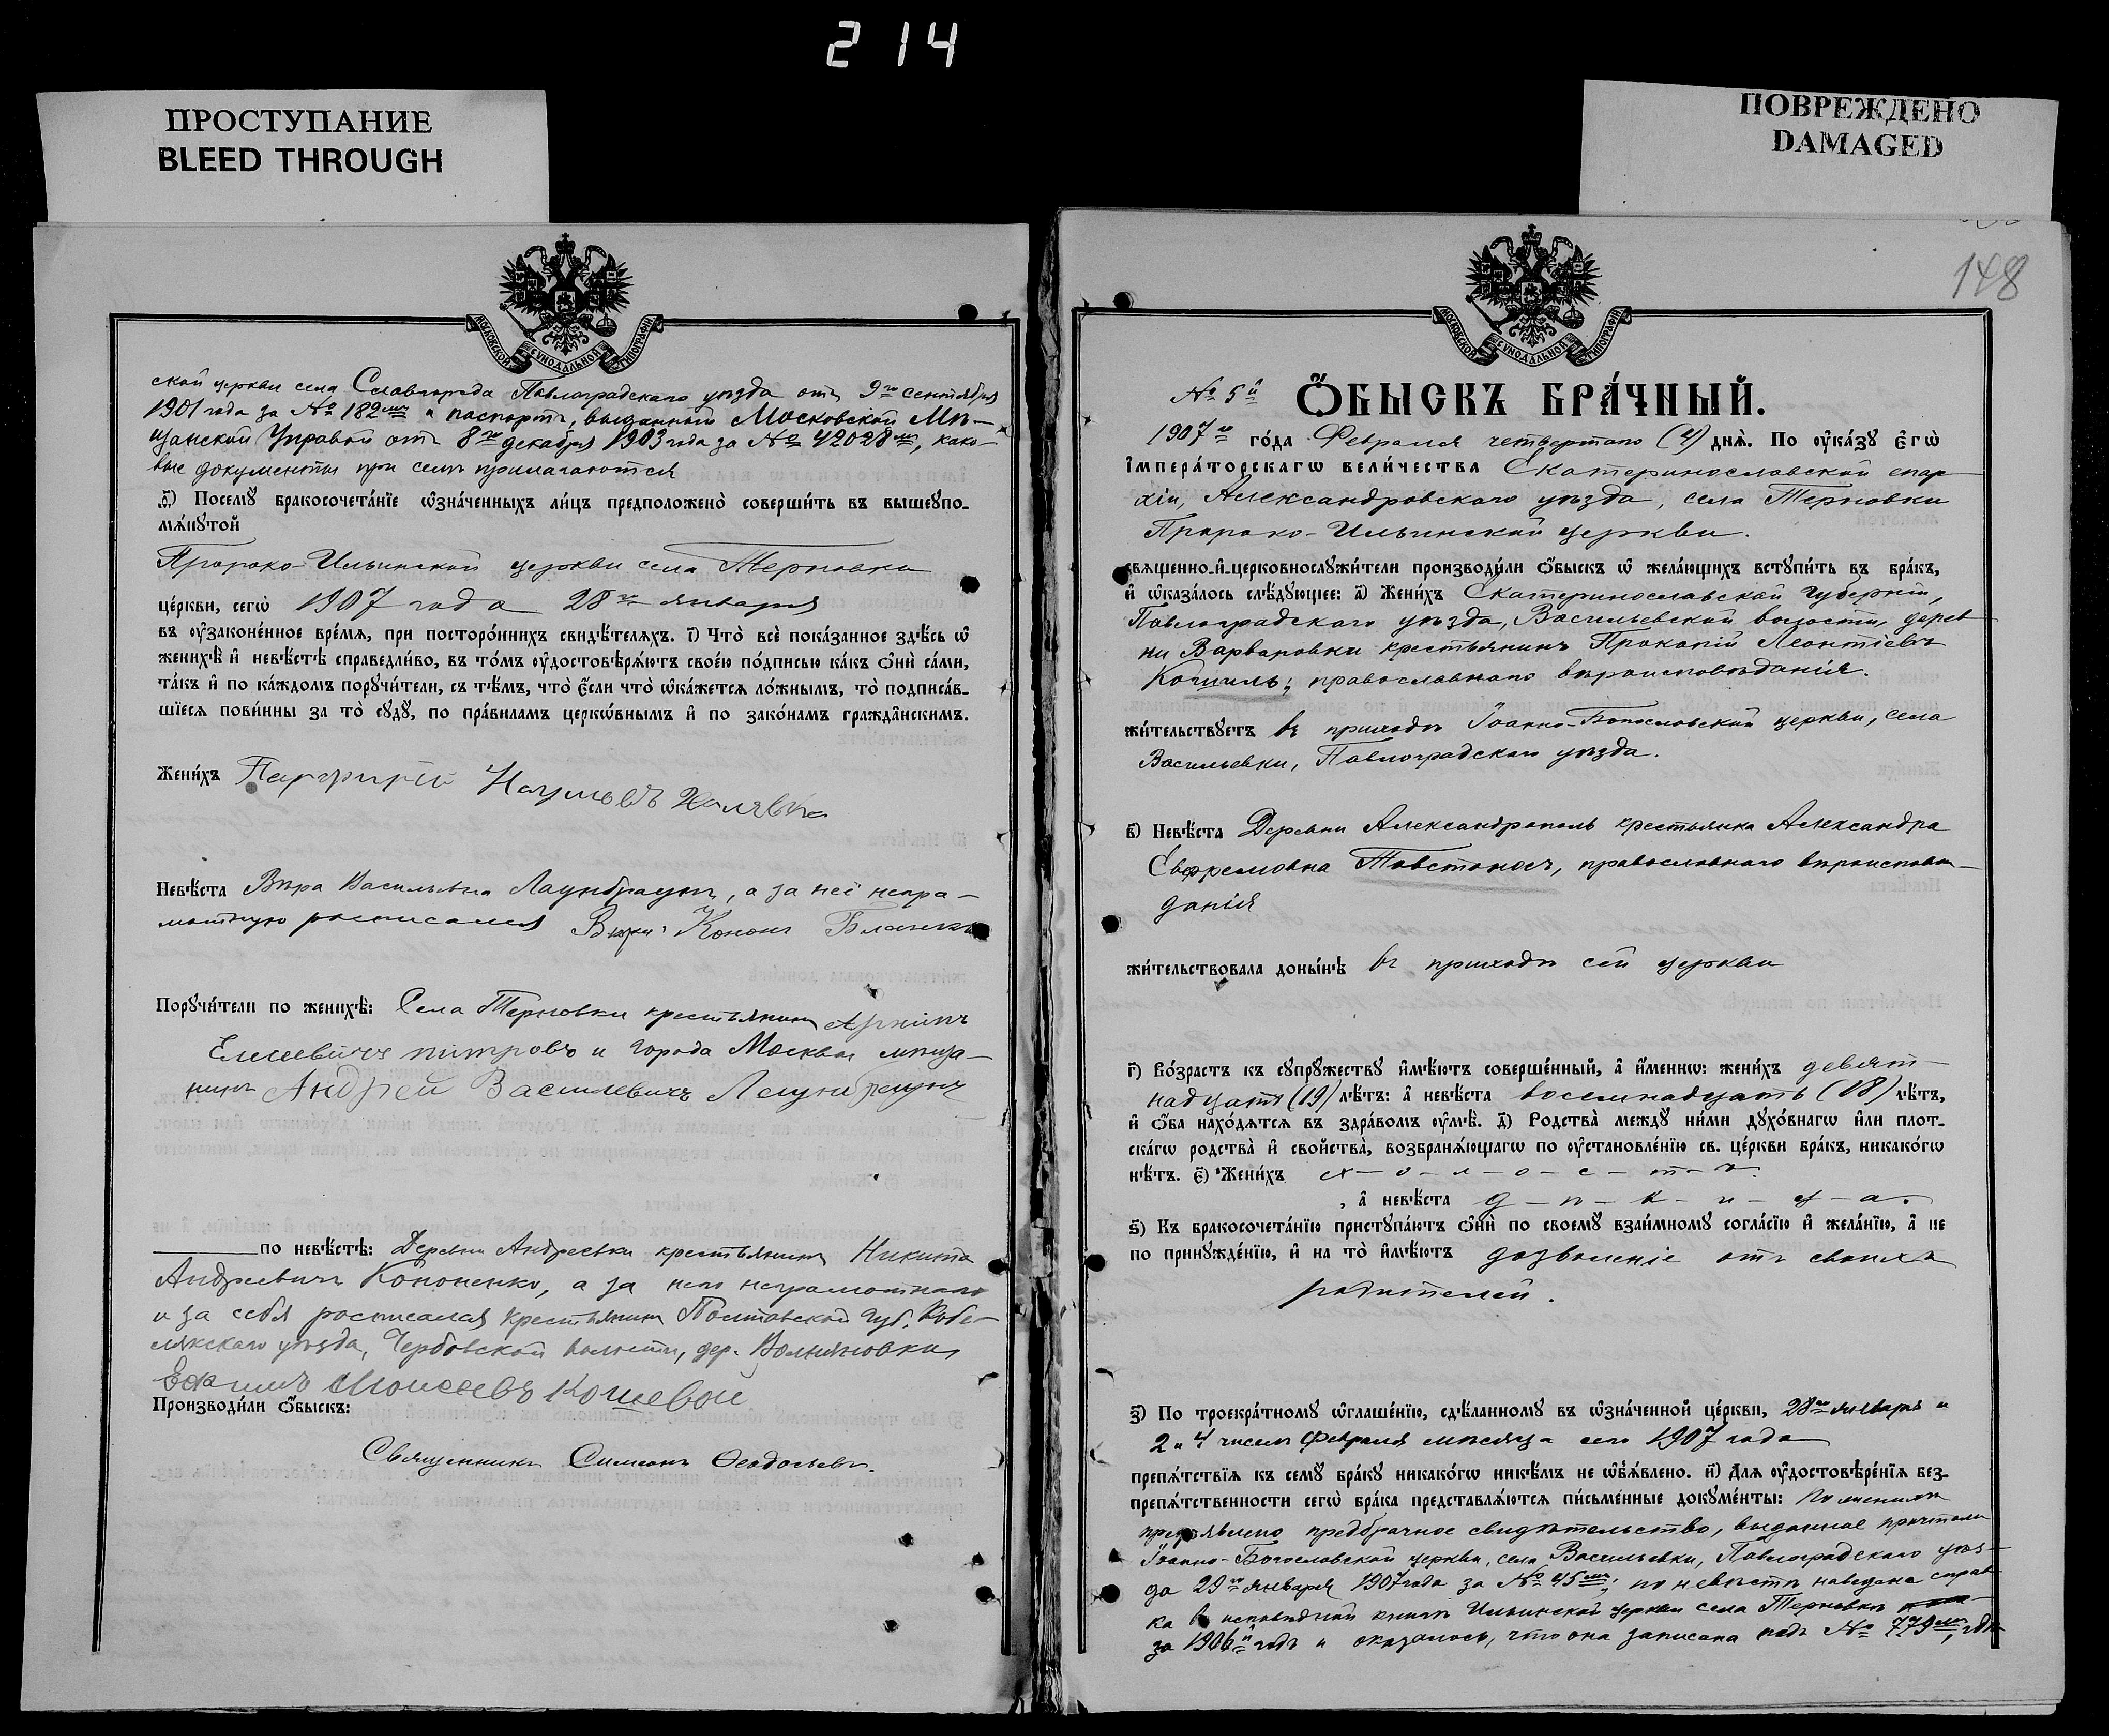 214
ПРОСТУПАНИЕ
BLEED THROUGH
ПОВРЕЖДЕНО
DAMAGED
МОСКОВСКОЙ СѴНОДАЛЬНОЙ ТИПОГРАФІИ
ской церкви села Славгорода Павлоградскаго уѣзда отъ 9го сентября
1901 года за № 182мъ и паспортъ, выданный Московской Мѣ–
щанской Управой отъ 8го декабря 1903 года за № 42028мъ, како–
вые документы при семъ прилагаются
Ѳ҃) Посемꙋ бракосочета́нїе ѡ҆зна́ченныхъ ли́цъ предположено̀ соверши́ть въ вышеꙋпо-
мѧ́нꙋтой
Пророко-Ильинской церкви села Терновки
це́ркви, сегѡ̀ 1907 года 28го января
въ ᲂу҆законе́нное вре́мѧ, при посторо́ннихъ свидѣ́телѧхъ. І҃) Что̀ всѐ пока́занное здѣ́сь ѡ҆
женихѣ̀ и҆ невѣ́стѣ справедли́во, въ то́мъ ᲂу҆достовѣрѧ́ютъ свое́ю по́дписью ка́къ ѻ҆нѝ са́ми,
та́къ и҆ по ка́ждомъ порꙋчи́тели, съ тѣ́мъ, что̀ є҆́сли что̀ ѡ҆ка́жетсѧ ло́жнымъ, то̀ подписа́в-
шїесѧ пови́нны за то̀ сꙋдꙋ̀, по пра́виламъ церкѡ́внымъ и҆ по зако́намъ гражда̑нскимъ.
Жени́хъ Парфирій Наумовъ
Невѣ́ста Вѣра Васильевна Лаунбраунъ, а за неё негра–
мотную росписался Кононъ
Порꙋчи́тели по женихѣ̀: Села Терновки крестьянинъ Архипъ
и города Москвы мѣща–
нинъ Андрей Василевичъ Лаунбраунъ
по невѣ́стѣ: Деревни Андреевки крестьянинъ Никита
Андреевичъ Кононенко, а за него неграмотнаго
и за себя росписался крестьянинъ Полтавской губ. Кобе–
лякскаго уѣзда, волости, дер.
Ефимъ Моисеевъ Кошевой
Производи́ли ѻ҆́быскъ:
Священникъ Симеонъ Ѳеодосьевъ.
148
МОСКОВСКОЙ СѴНОДАЛЬНОЙ ТИПОГРАФІИ
№ 5й Ѻ҆́БЫСКЪ БРА́ЧНЫЙ.
1907го го́да Февраля четвертаго (4) днѧ̀. По ᲂу҆ка́зꙋ Є҆гѡ̀
І҆мпера́торскагѡ вели́чества Екатеринославской епар–
хіи, Александровскаго уѣзда, села Терновки
Пророко-Ильинской церкви.
свѧщенно-и҆-церковнослꙋжи́тели производи́ли ѻ҆́быскъ ѡ҆ жела́ющихъ встꙋпи́ть въ бра́къ,
и҆ ѡ҆каза́лось слѣ́дꙋющее: А҃) Жени́хъ Екатеринославской губерніи,
Павлоградскаго уѣзда, Васильевской волости, дерев–
ни Варваровки крестьянинъ Прокопій Леонтіевъ
Кошиль, православнаго вѣроисповѣданія.
жи́тельствꙋетъ въ приходѣ Іоанно-Богословской церкви, села
Васильевки, Павлоградскаго уѣзда.
В҃) Невѣ́ста Деревни Александрополь крестьянка Александра
Евфремовна Товстоносъ, православнаго вѣроисповѣ–
данія
жи́тельствовала доны́нѣ въ приходѣ сей церкви
Г҃) Во́зрастъ къ сꙋпрꙋ́жествꙋ и҆мѣ́ютъ соверше́нный, а҆ и҆́меннѡ: жени́хъ девят–
надцать (19) лѣ́тъ: а҆ невѣ́ста восемнадцать (18) лѣ́тъ,
и҆ ѻ҆́ба нахо́дѧтсѧ въ здра́вомъ ᲂу҆мѣ̀. Д҃) Родства̀ междꙋ̀ ни́ми дꙋхо́внагѡ и҆лѝ плот-
ска́гѡ родства̀ и҆ сво́йства̀, возбранѧ́ющагѡ по ᲂу҆становле́нїю св. це́ркви бра́къ, никако́гѡ
нѣ́тъ. Є҃) Жени́хъ х–о–л–о–с–т–ъ
, а҆ невѣ́ста д–ѣ–в–и–ц–а.
Ѕ҃) Къ бракосочета́нїю пристꙋпа́ютъ ѻ҆нѝ по своемꙋ̀ взаи́мномꙋ согла́сїю и҆ жела́нїю, а҆ не
по принꙋжде́нїю, и҆ на то̀ и҆мѣ́ютъ дозволеніе отъ своихъ
родителей.
З҃) По троекра́тномꙋ ѡ҆глаше́нїю, сдѣ́ланномꙋ въ ѡ҆зна́ченной це́ркви, 28го января и
2 и 4 чиселъ Февраля мѣсяца сего 1907 года
препѧ́тствїѧ къ семꙋ̀ бра́кꙋ никако́гѡ никѣ́мъ не ѡ҆б̾ѧ́влено. И҃) Длѧ ᲂу҆достовѣре́нїѧ без-
препѧ́тственности сегѡ̀ бра́ка представлѧ́ютсѧ пи́сьменные докꙋме́нты: По женихѣ
предъявлено предбрачное свидѣтельство, выданное причтомъ
Іоанно-Богословской церкви, села Васильевки, Павлоградскаго уѣз–
да 29го января 1907 года за № 45мъ; по невѣстѣ наведена справ–
ка въ исповѣдной книгѣ Ильинской церкви села Терновки
за 1906й годъ и оказалось, что она записана подъ № 779мъ,